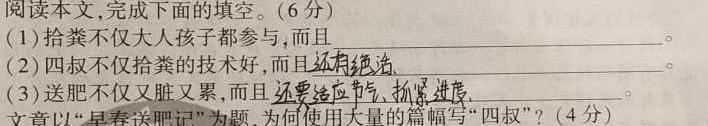 阅读本文,完成下面的填空。(6分)
(1)拾粪不仅大人孩子都参与,而且。
(2)四叔不仅拾粪的技术好,而且还有绝活、。
(3)送肥不仅又脏又累,而且还要适应节气、抓紧进度、。
文章以“早春送肥记”为题,为何使用大量的篇幅写“四叔”?(4分)